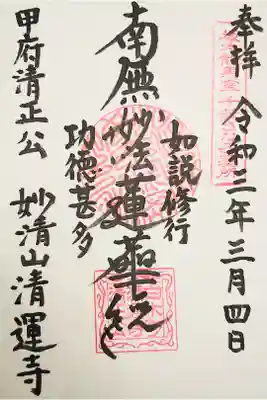 奉拝 令和三年三月四日
如説修行
南無妙法蓮華経
功徳甚多
甲府清正公 妙清山清運寺